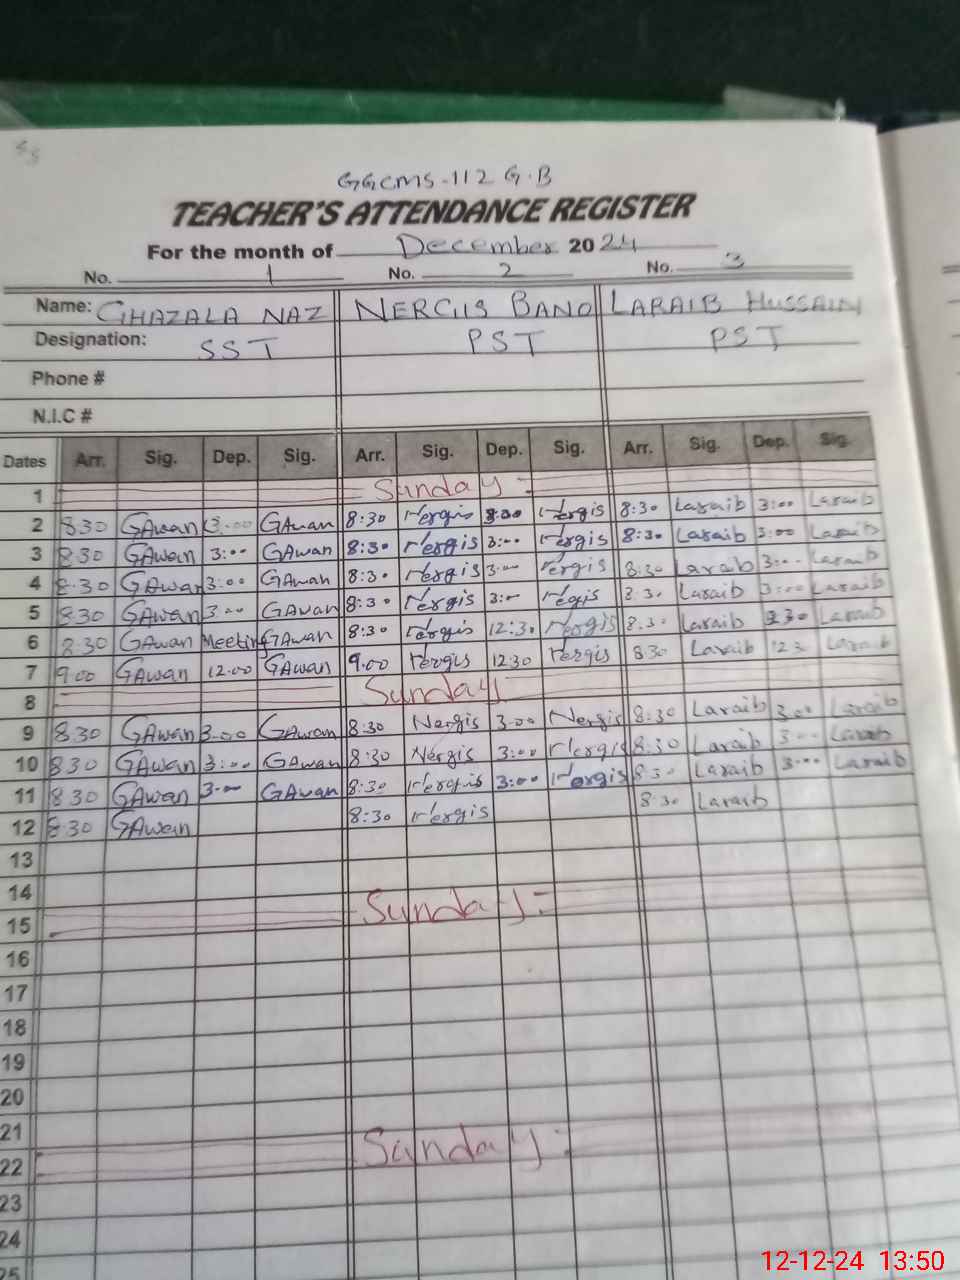 GGCMS-112 G.B
TEACHER'S ATTENDANCE REGISTER
For the month of December 2024
No. 1 No. 2 No. 3
Name: GHAZALA NAZ NERGIS BANO LARAIB HUSSAIN
Designation: SST PST PST
Phone #
N.I.C #
Dates Arr. Sig. Dep. Sig. Arr. Sig. Dep. Sig. Arr. Sig. Dep. Sig.
1 Sunday
2 8:30 GAwan 3:00 GAwan 8:30 Nergis 3:00 Nergis 8:30 Laraib 3:00 Laraib
3 8:30 GAwan 3:00 GAwan 8:30 Nergis 3:00 Nergis 8:30 Laraib 3:00 Laraib
4 8:30 GAwan 3:00 GAwan 8:30 Nergis 3:00 Nergis 8:30 Laraib 3:00 Laraib
5 8:30 GAwan 3:00 GAwan 8:30 Nergis 3:00 Negis 8:30 Laraib 3:00 Laraib
6 8:30 GAwan Meeting GAwan 8:30 Nergis 12:30 Nergis 8:30 Laraib Laraib
7 9:00 GAwan 12:00 GAwan 9:00 Nergis 12:30 Nergis 8:30 Laraib Laraib
8 Sunday
9 8:30 GAwan 3:00 GAwan 8:30 Nergis 3:00 Nergis 8:30 Laraib 3:00 Laraib
10 8:30 GAwan 3:00 GAwan 8:30 Nergis 3:00 Nergis 8:30 Laraib 3:00 Laraib
11 8:30 GAwan 3:00 GAwan 8:30 Nergis 3:00 Nergis 8:30 Laraib 3:00 Laraib
12 8:30 GAwan 8:30 Nergis 8:30 Laraib
13
14
15 Sunday
16
17
18
19
20
21
22 Sunday
23
24
25
12-12-24 13:50